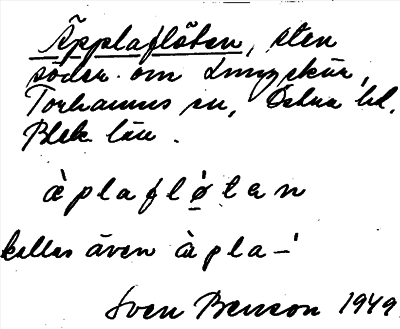 Äpplaflöten, sten
söder om Lmyskär,
Torhamns sn, Östra hd.
Blek. län.
àplafløten
kallas även àpla–'
Sven Benson 1949.